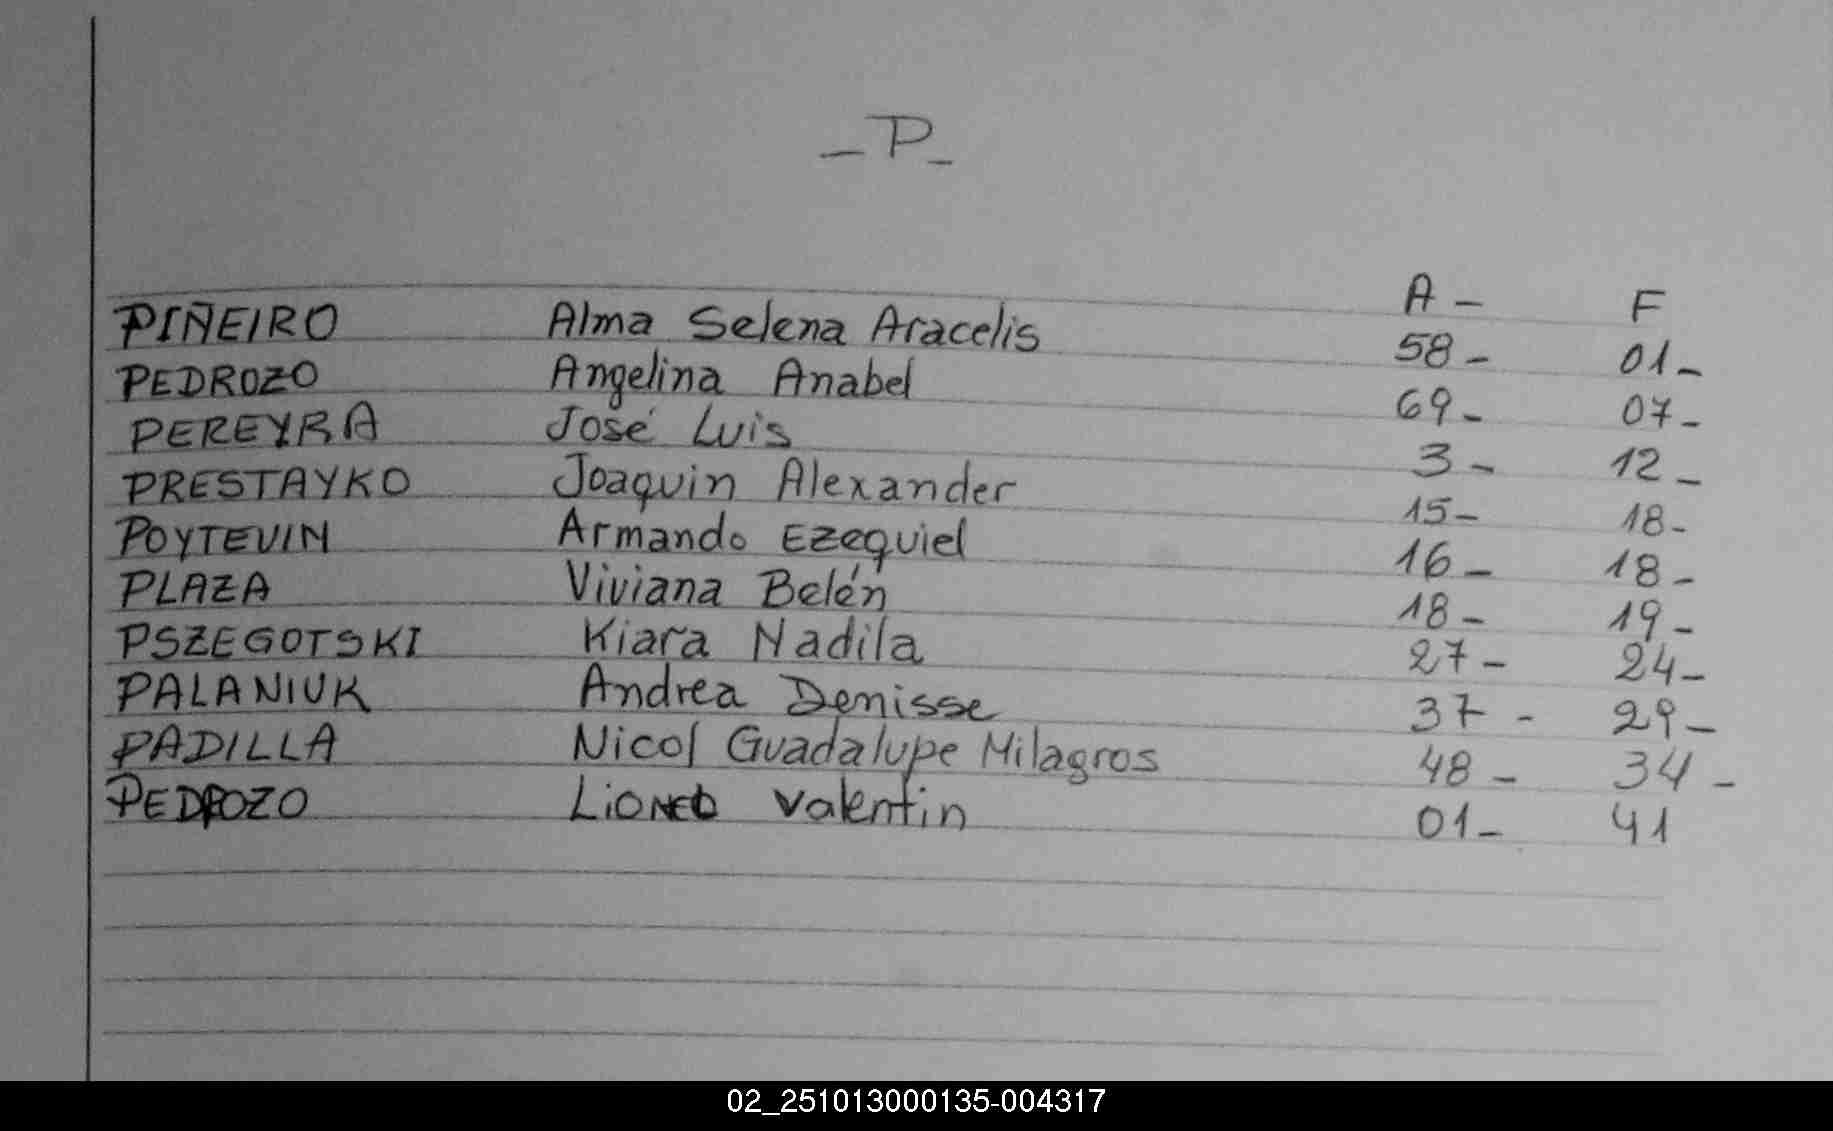 _P_
A - F
PIÑEIRO Alma Selena Aracelis 58 - 01 -
PEDROZO Angelina Anabel 69 - 07 -
PEREYRA José Luis 3 - 12 -
PRESTAYKO Joaquin Alexander 15 - 18 -
POYTEVIN Armando Ezequiel 16 - 18 -
PLAZA Viviana Belén 18 - 19 -
PSZEGOTSKI Kiara Nadila 27 - 24 -
PALANIUK Andrea Denisse 37 - 29 -
PADILLA Nicol Guadalupe Milagros 48 - 34 -
PEDROZO Lionel Valentin 01 - 41
02_251013000135-004317